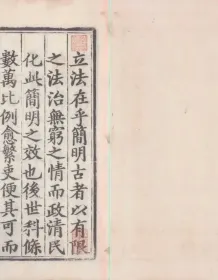 立法在乎簡明古者以有限
之法治無窮之情而政清民
化此簡明之效也後世科條
數萬比例愈繁吏便其可而